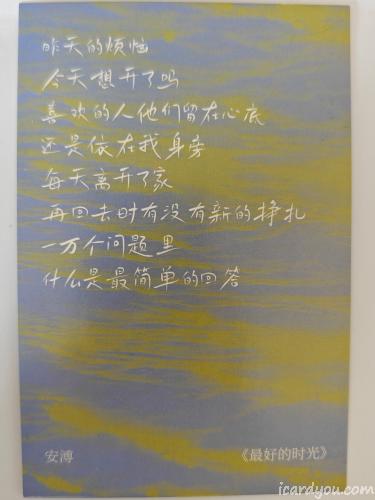 昨天的烦恼
今天想开了吗
喜欢的人他们留在心底
还是依在我身旁
每天离开了家
再回去时有没有新的挣扎
一万个问题里
什么是最简单的回答
安溥 《最好的时光》
icardyou.com